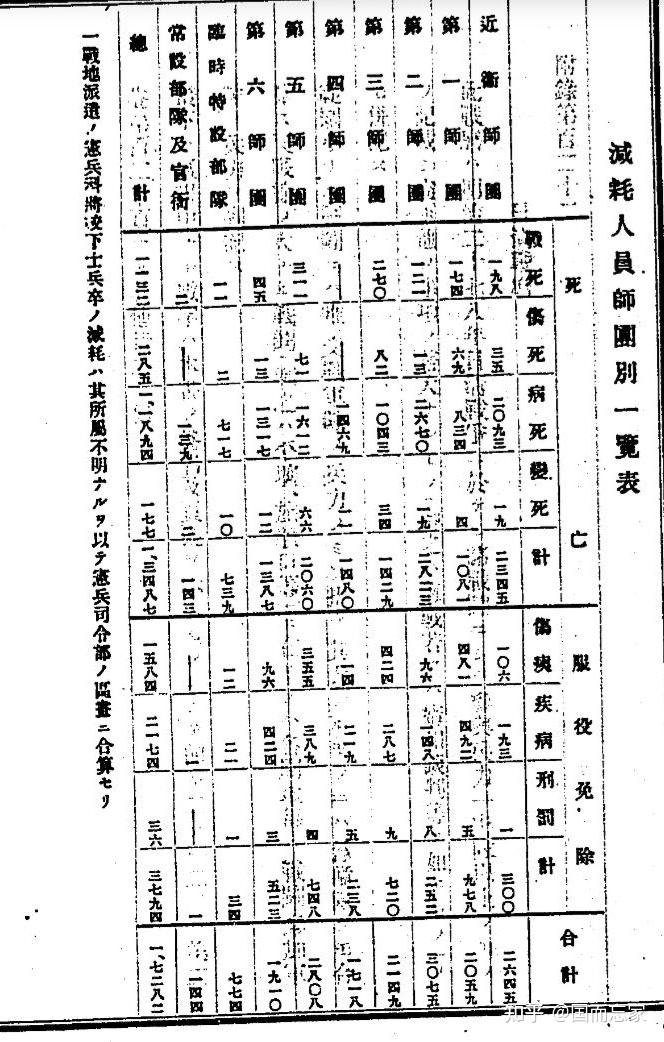 減耗人員師團別一覽表
死亡 服役免除 合計
戰死 傷死 病死 變死 計 傷痍 疾病 刑罰 計
近衛師團 一九八 三五 二〇九三 一九 二三四五 一〇六 一九三 一 三〇〇 二六四五
第一師團 一七四 六九 八三四 四 一〇八一 四八一 四九二 五 九七八 二〇五九
第二師團 一二一 一三 二六七〇 一九 二八二三 九六 一四八 八 二五二 三〇七五
第三師團 二七〇 八二 一〇四三 三四 一四二九 四二四 二八七 九 七二〇 二一四九
第四師團 — — 一四六九 一一 一四八〇 一四 二一九 五 二三八 一七一八
第五師團 三一一 七一 一六一二 六六 二〇六〇 三五五 三八九 四 七四八 二八〇八
第六師團 四五 一三 一三一七 一二 一三八七 九六 四二四 三 五二三 一九一〇
臨時特設部隊 一一 二 七一七 一〇 七三九 一二 二一 一 三四 七七四
常設部隊及官衙 二 — 一三九 二 一四三 — 一 — 一 一四四
總計 一一三二 二八五 一、一八九四 一七七 一、三四八七 一五八四 二一七四 三六 三七九四 一、七二八二
一戰地派遣ノ憲兵科將校下士兵卒ノ減耗ハ其所屬不明ナルヲ以テ憲兵司令部ノ區畫ニ合算セリ
知乎 @国而忘家